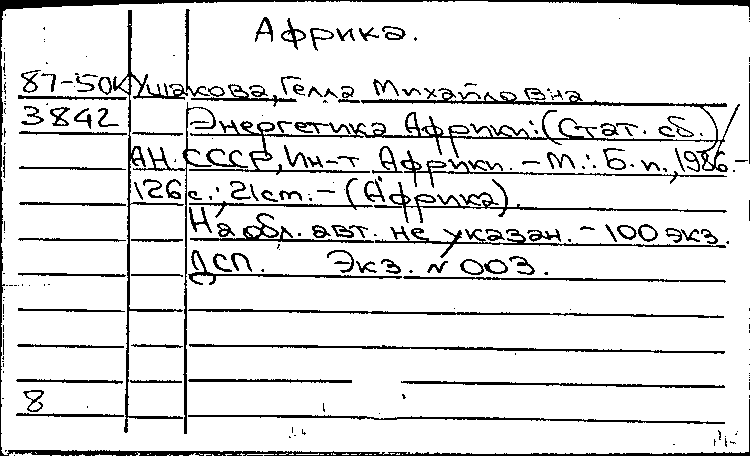 Африка.
87-50К Ушакова, Гелла Михайловна
3842 Энергетика Африки: (Стат. сб.) /
АН СССР, Ин-т Африки. - М.: Б.и., 1986. -
126 с.; 21 см. - (Африка).
На обл. авт. не указан. - 100 экз.
ДСП. Экз. N 003.
8